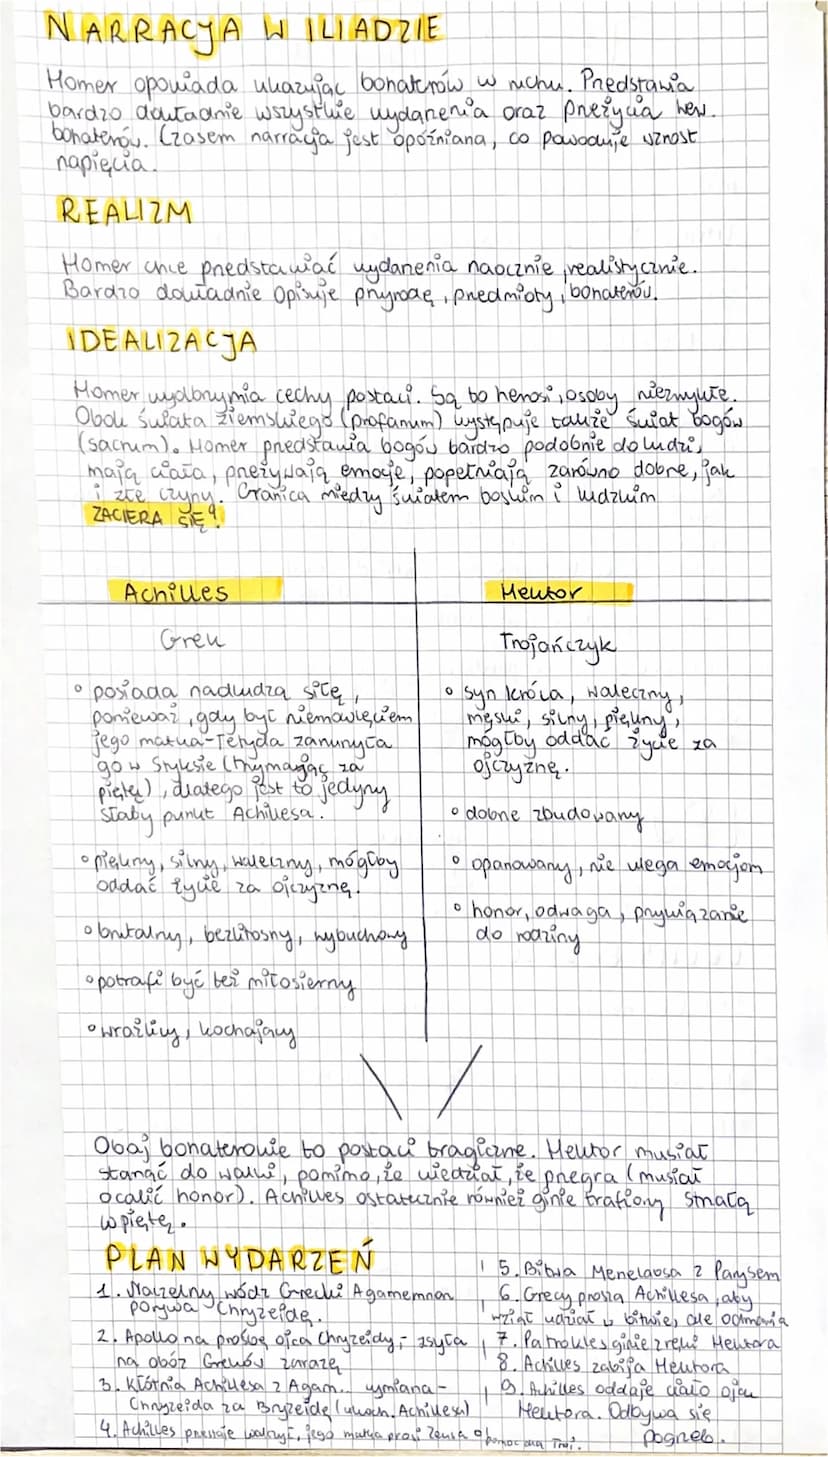 NARRACJA W ILIADZIE
Homer opowiada ukazując bohaterów w ruchu. Przedstawia
bardzo dokładnie wszystkie wydarzenia oraz przeżycia wew.
bohaterów. Czasem narracja jest opóźniana, co powoduje wzrost
napięcia.
REALIZM
Homer chce przedstawiać wydarzenia naocznie, realistycznie.
Bardzo dokładnie opisuje przyrodę, przedmioty, bohaterów.
IDEALIZACJA
Homer wyolbrzymia cechy postaci. Są to herosi, osoby niezwykłe.
Obok świata ziemskiego (profanum) występuje także świat bogów
(sacrum). Homer przedstawia bogów bardzo podobnie do ludzi,
mają ciała, przeżywają emocje, popełniają zarówno dobre, jak
i złe czyny. Granica między światem boskim i ludzkim
ZACIERA SIĘ!
Achilles
Grek
• posiada nadludzą siłę,
ponieważ, gdy był niemowlęciem
jego matka-Tetyda zanurzyła
go w Styksie (trzymając za
piętę), dlatego jest to jedyny
słaby punkt Achillesa.
• piękny, silny, waleczny, mógłby
oddać życie za ojczyznę.
• brutalny, bezlitosny, wybuchowy
• potrafi być też miłosierny
• wrażliwy, kochający
Hektor
Trojańczyk
• syn króla, waleczny,
męski, silny, piękny,
mógłby oddać życie za
ojczyznę.
• dobrze zbudowany
• opanowany, nie ulega emocjom
• honor, odwaga, przywiązanie
do rodziny
Obaj bohaterowie to postaci tragiczne. Hektor musiał
stanąć do walki, pomimo, że wiedział, że przegra (musiał
ocalić honor). Achilles ostatecznie również ginie trafiony strzałą
w piętę.
PLAN WYDARZEŃ
1. Naczelny wódz Grecki Agamemnon
porywa Chryzeidę.
2. Apollo na prośbę ojca Chryzeidy, - zsyła
na obóz Greków zarazę
3. Kłótnia Achillesa z Agam. wymiana -
Chryzeida za Bryzeidę (ukoch. Achillesa)
4. Achilles przestaje walczyć, jego matka prosi Zeusa o pomoc dla Troi.
5. Bitwa Menelaosa z Parysem
6. Grecy proszą Achillesa, aby
wziął udział w bitwie, ale odmawia
7. Patrokles ginie z ręki Hektora
8. Achilles zabija Hektora
9. Achilles oddaje ciało ojcu
Hektora. Odbywa się
pogrzeb.